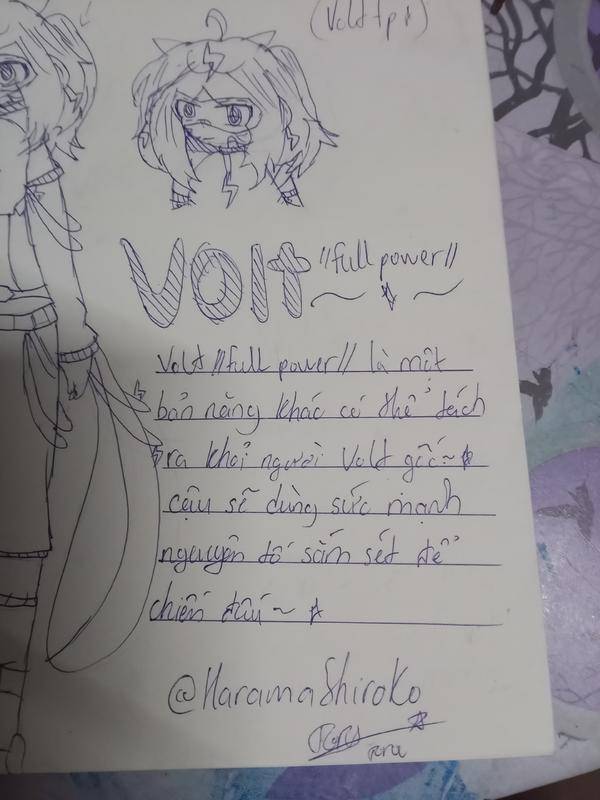 (Volt fp)
Volt //full power//
Volt //full power// là một
bản năng khác có thể tách
ra khỏi người Volt gốc~☆
cậu sẽ dùng sức mạnh
nguyên tố sấm sét để
chiến đấu~☆
@HaramaShiroko